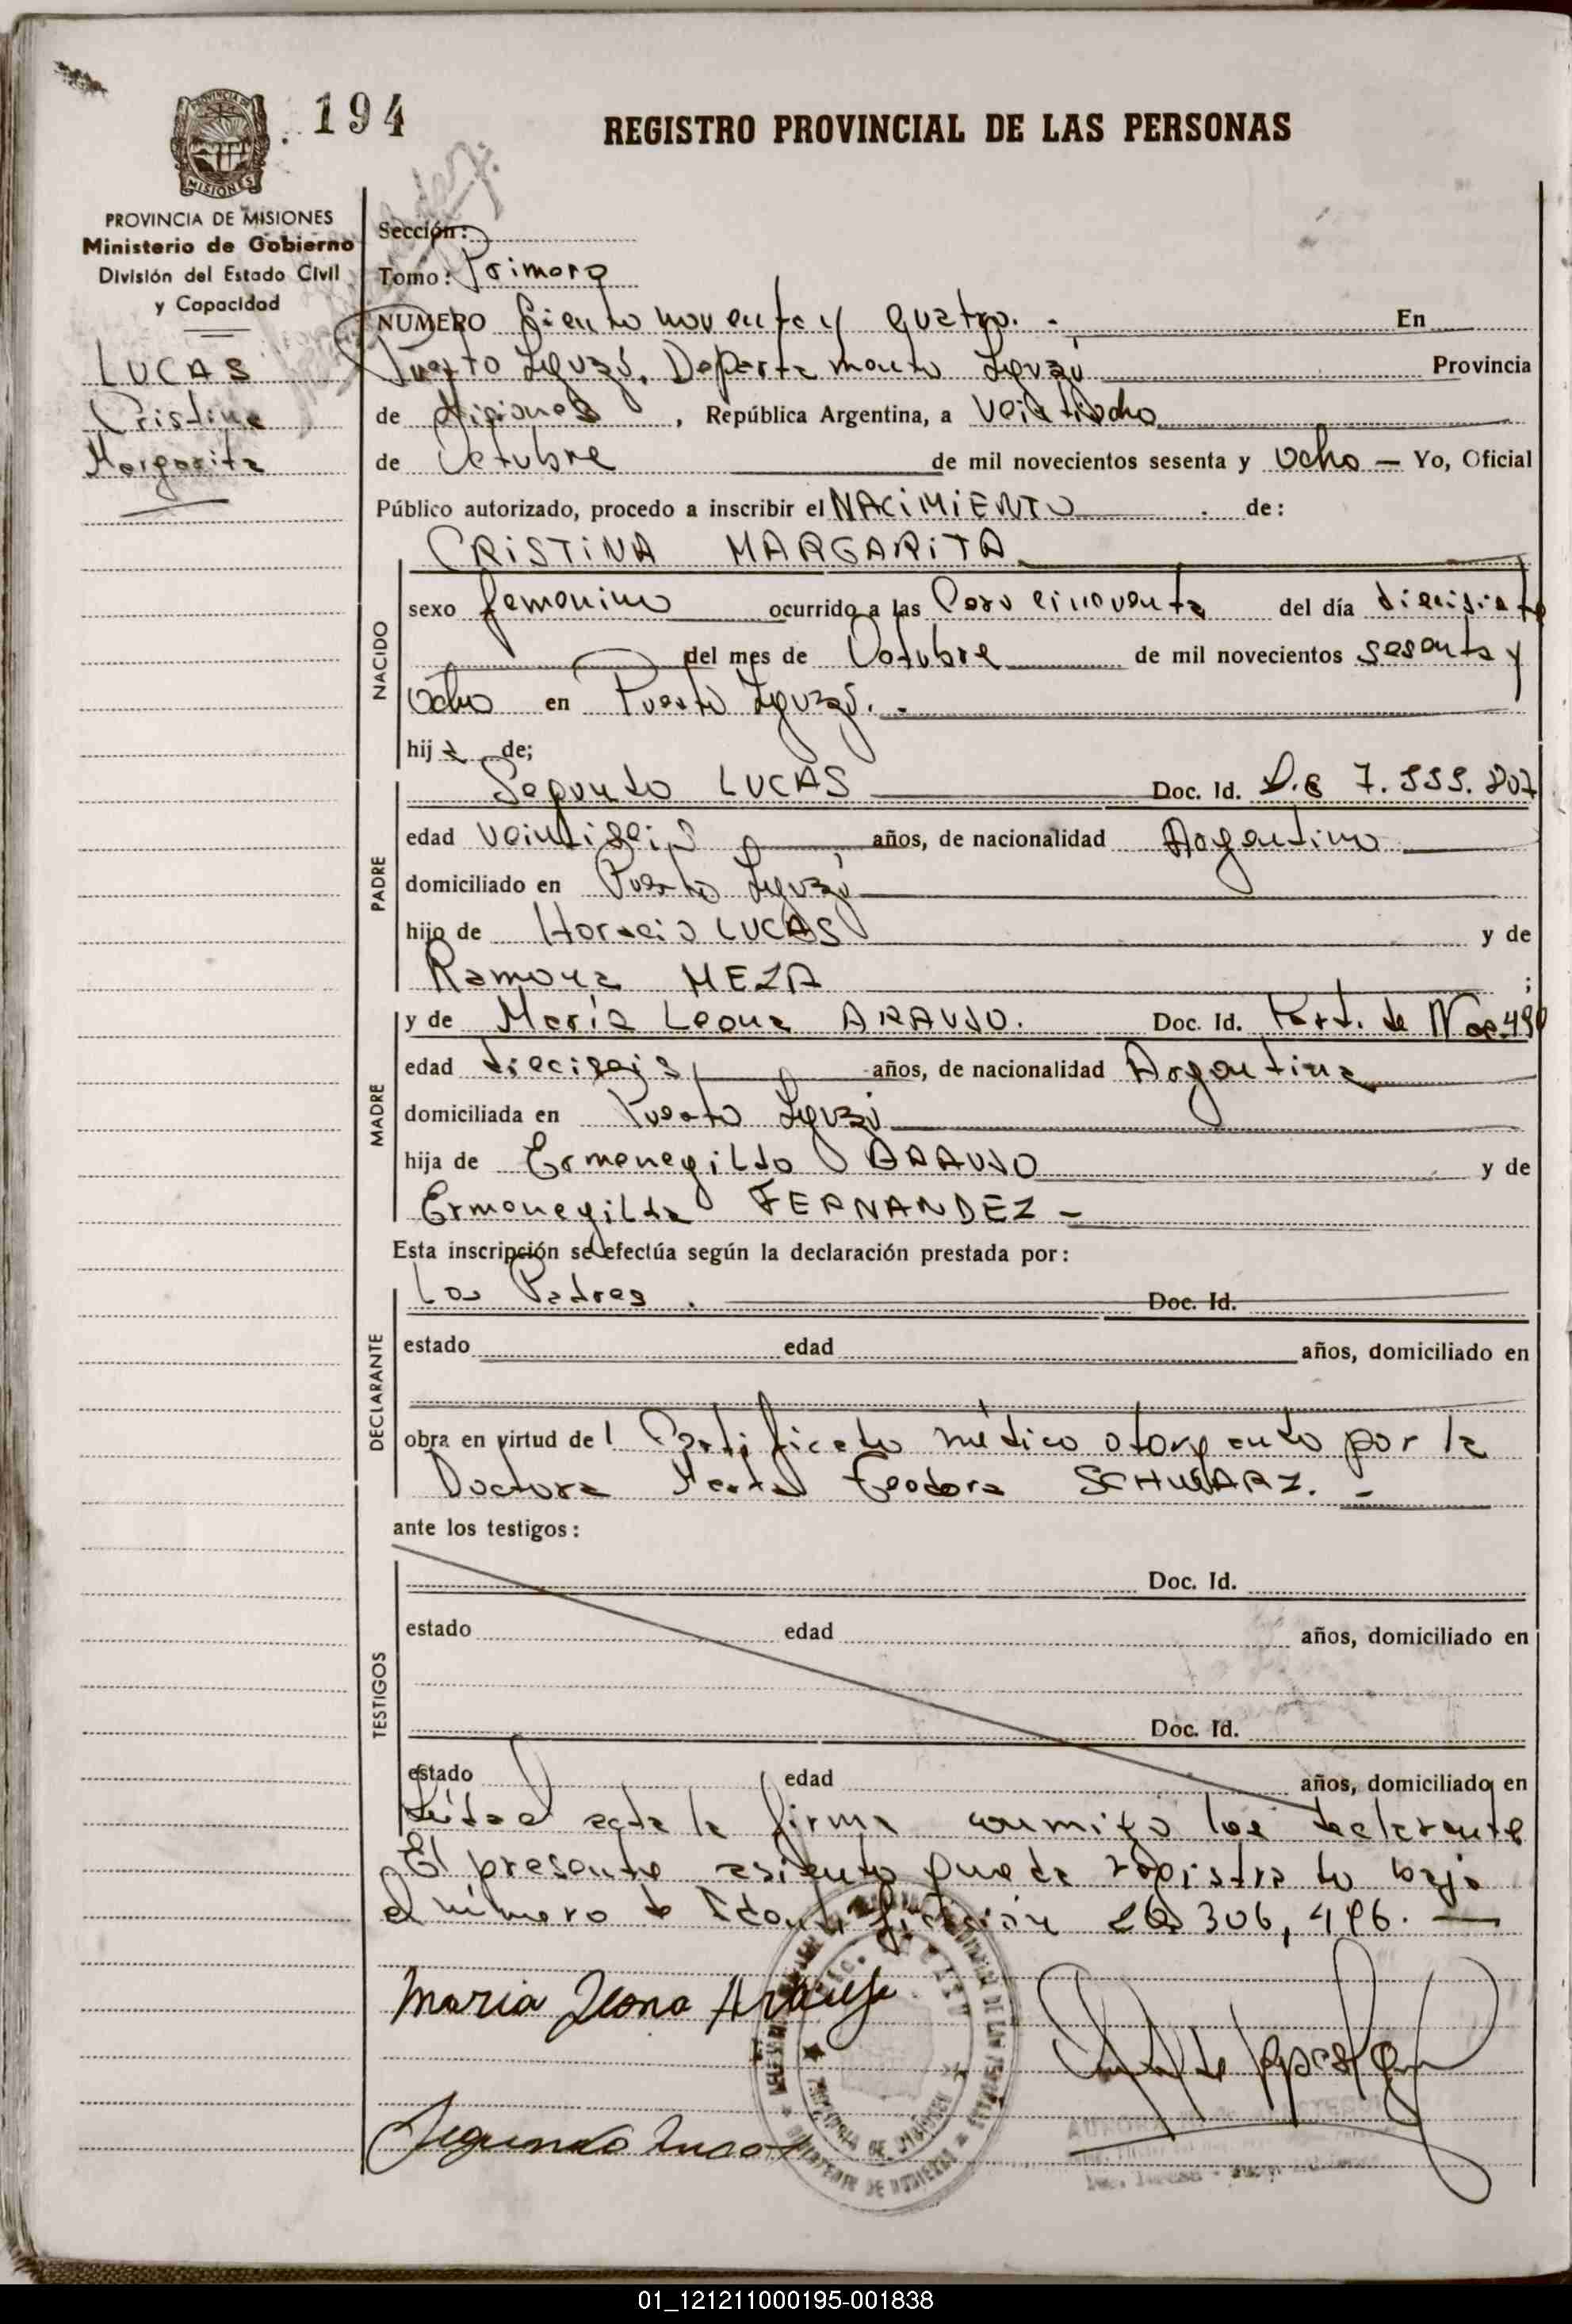 194
REGISTRO PROVINCIAL DE LAS PERSONAS
PROVINCIA DE MISIONES
PROVINCIA DE MISIONES
Ministerio de Gobierno
División del Estado Civil
y Capacidad
LUCAS
Cristina
Margarita
Sección:
Tomo: Primero
NUMERO Ciento noventa y cuatro. - En
Puerto Iguazú, Departamento Iguazú Provincia
de Misiones, República Argentina, a veintiocho
de Octubre de mil novecientos sesenta y ocho — Yo, Oficial
Público autorizado, procedo a inscribir el NACIMIENTO de:
CRISTINA MARGARITA
NACIDO
sexo femenino ocurrido a las Cero cincuenta del día diecisiete
del mes de Octubre de mil novecientos sesenta y
ocho en Puerto Iguazú. -
hija de;
PADRE
Segundo LUCAS Doc. Id. 7.555.807
edad veintiseis años, de nacionalidad Argentino
domiciliado en Puerto Iguazú
hijo de Horacio LUCAS y de
Ramona MEZA ;
MADRE
y de María Leona ARAUJO. Doc. Id. Part. de N
edad dieciseis años, de nacionalidad Argentina
domiciliada en Puerto Iguazú
hija de Ermenegildo ARAUJO y de
Ermenegilda FERNANDEZ -
Esta inscripción se efectúa según la declaración prestada por:
DECLARANTE
Los Padres. Doc. Id.
estado edad años, domiciliado en
obra en virtud del Certificado médico otorgado por la
Doctora Marta Teodora SCHWARZ. -
ante los testigos:
TESTIGOS
Doc. Id.
estado edad años, domiciliado en
Doc. Id.
estado edad años, domiciliado en
Leída el acta la firma conmigo los declarante
El presente asiento queda registrado bajo
el número de Identificación 20 306,496. —
Maria Leona Araujo
Segundo Lucas
PROVINCIA DE MISIONES
MINISTERIO DE GOBIERNO
01_121211000195-001838